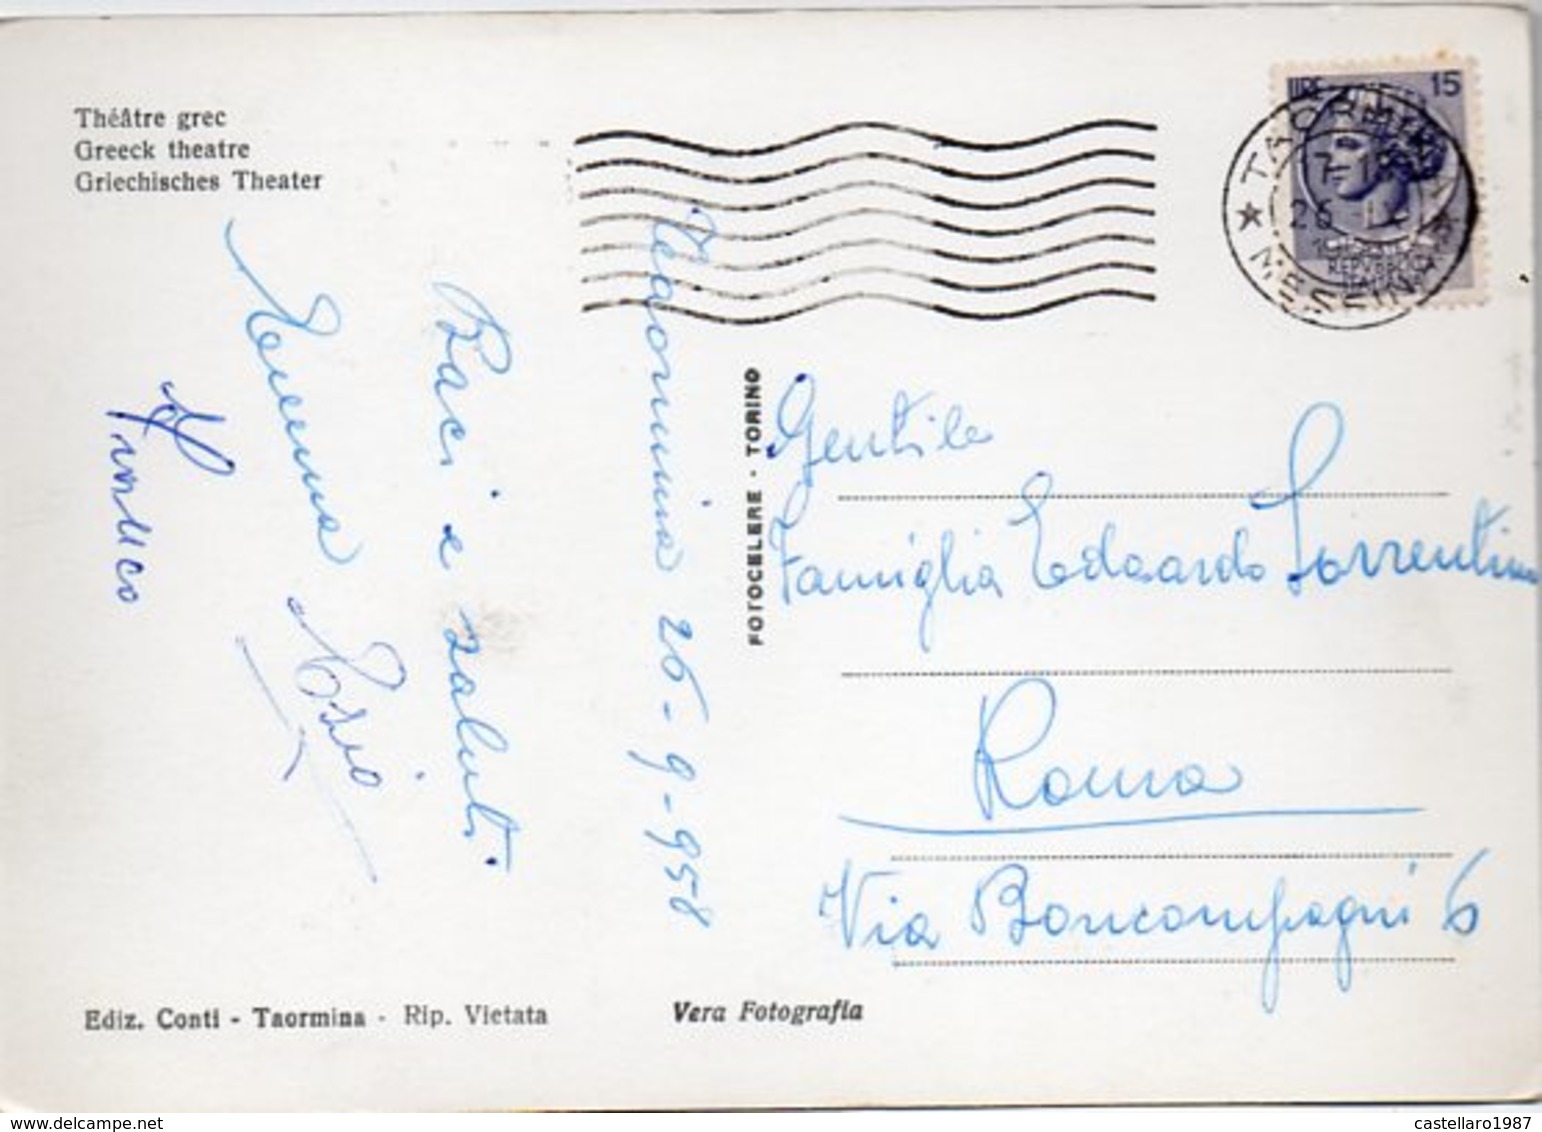 Théâtre grec
Greeck theatre
Griechisches Theater
Taormina 26-9-958
Baci e saluti
FOTOCELERE - TORINO
LIRE 15
TAORMINA
26
MESSINA
Gentile
Famiglia Edoardo Sorrentino
Roma
Via Boncompagni 6
Ediz. Conti - Taormina - Rip. Vietata
Vera Fotografia
castellaro1987